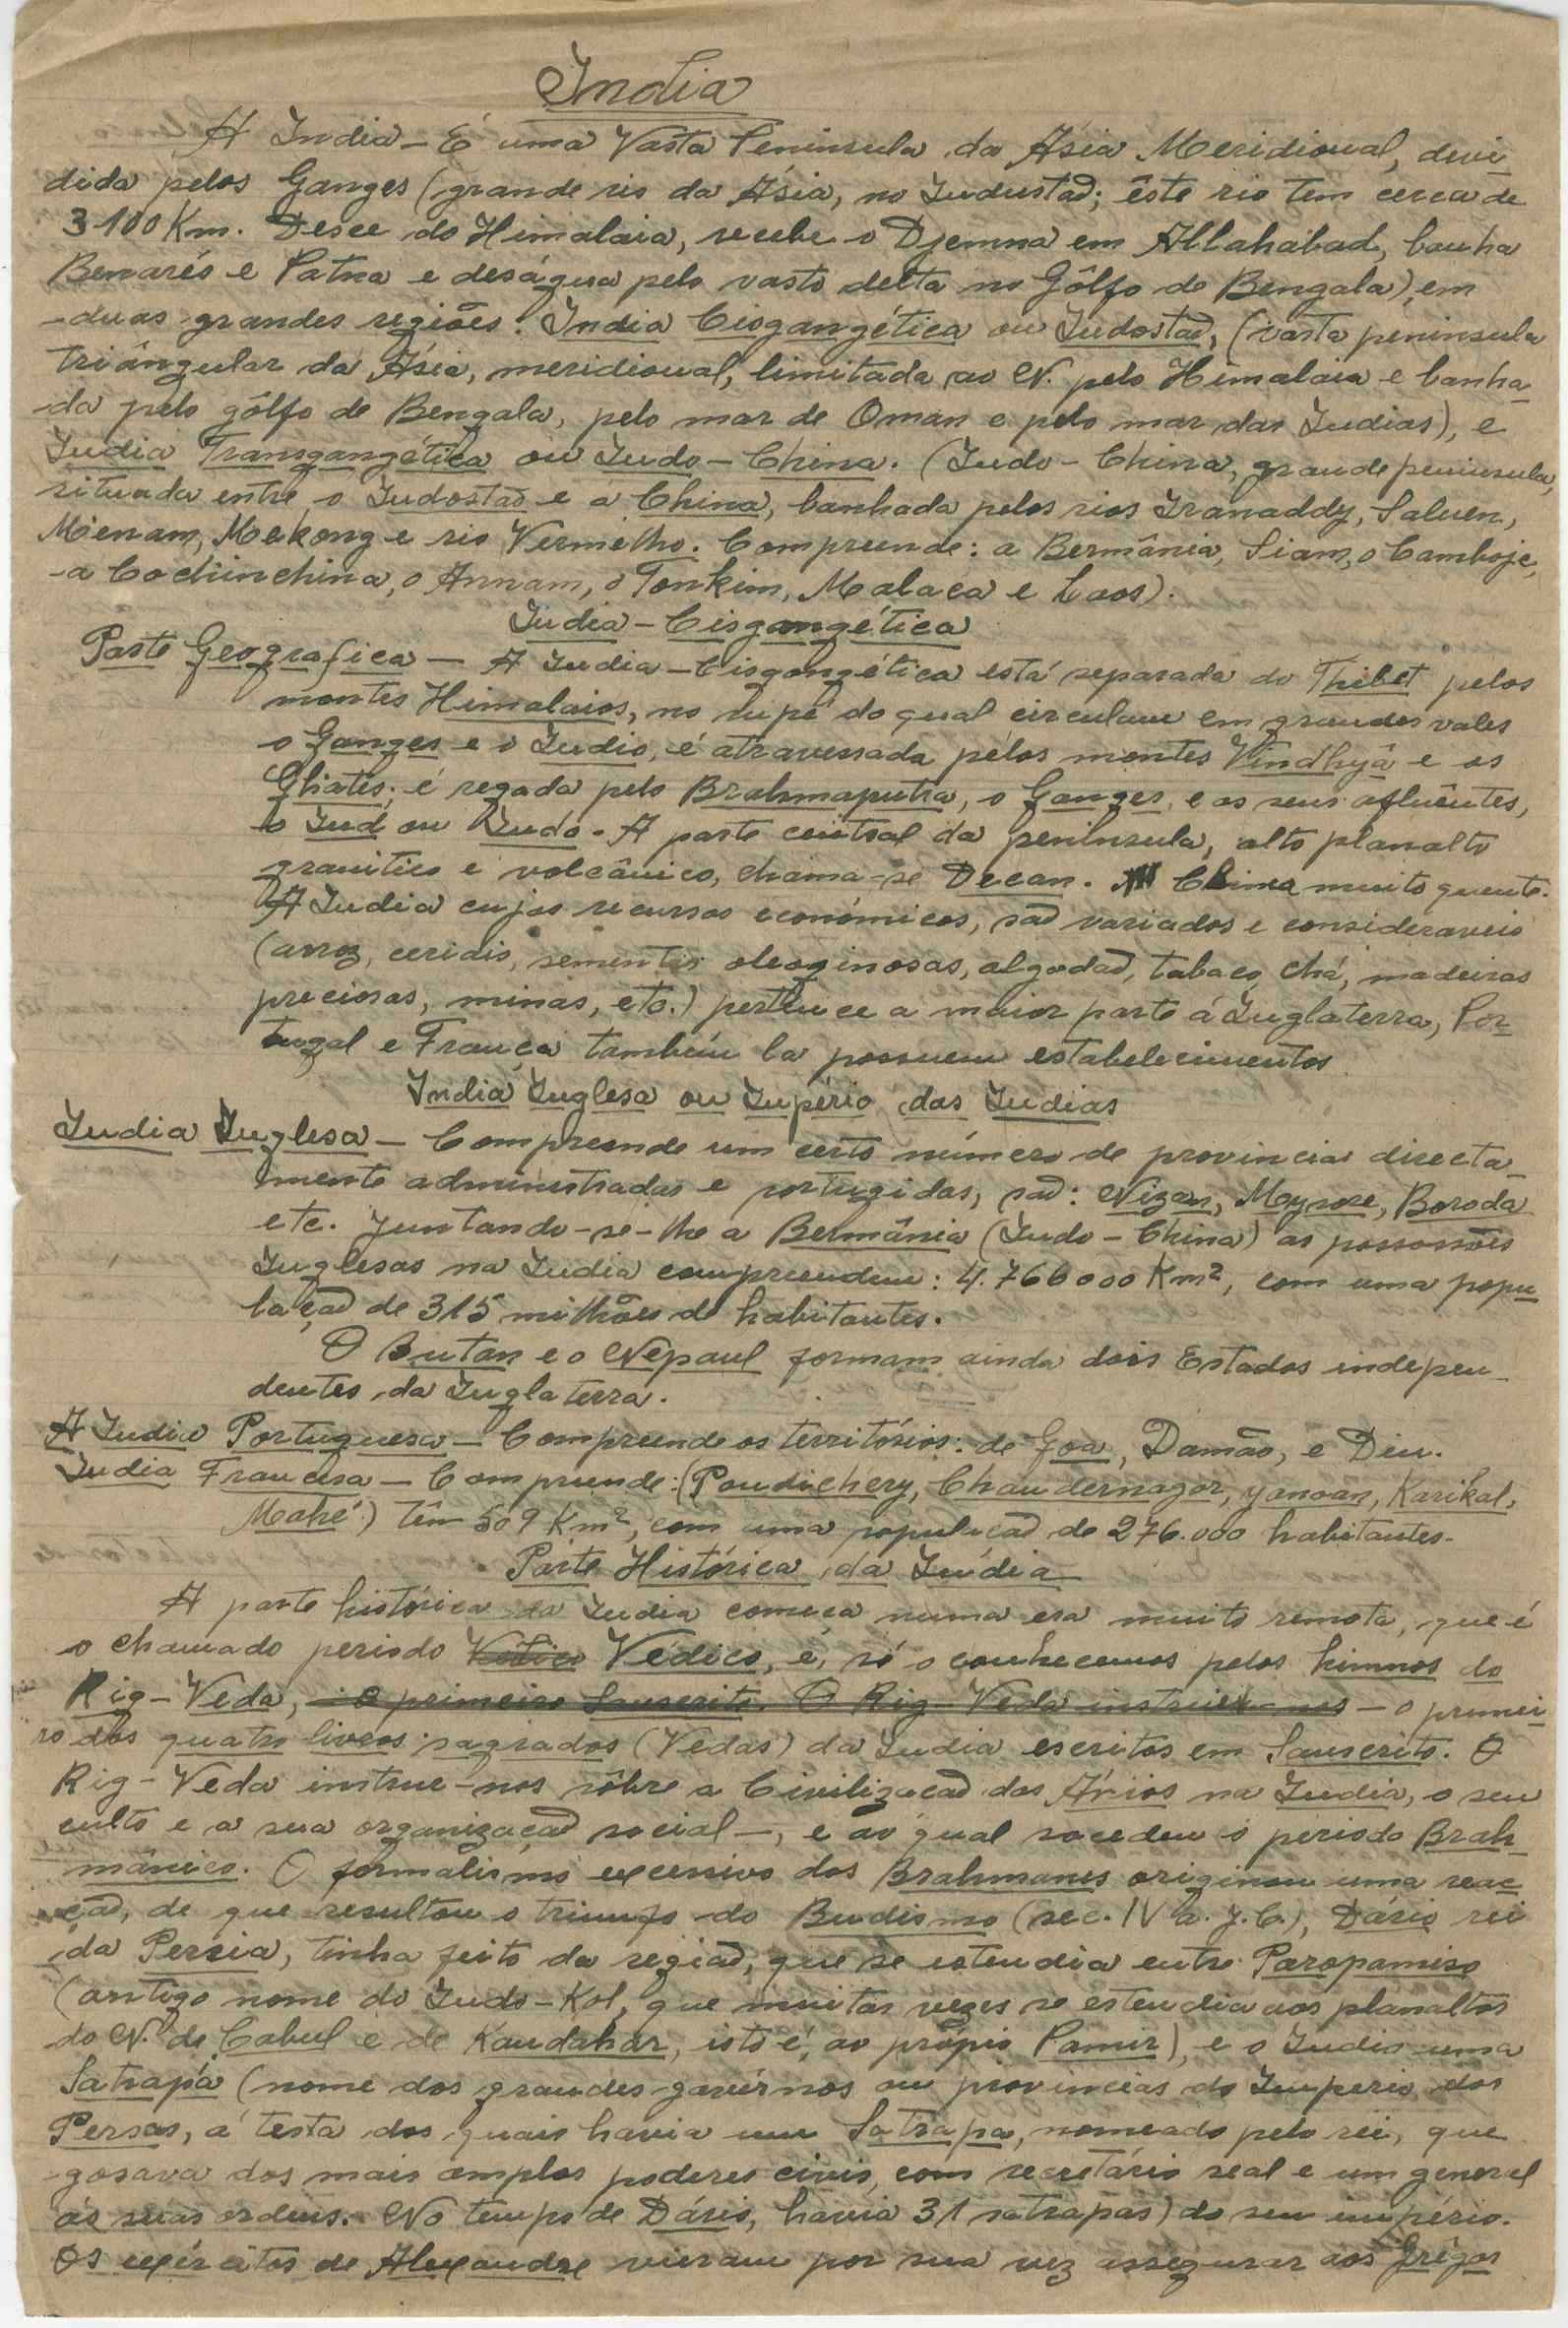 India
A India - É uma Vasta Peninsula da Ásia Meridional, devi-
dida pelos Ganges (grande rio da Ásia, no Industad; êste rio tem cerca de
3.100 Km. Desce do Himalaia, recebe o Djemna em Allahabad, banha
Benarés e Patna e deságua pelo vasto delta no Gôlfo de Bengala), em
duas grandes regiões: India Cisgangética ou Indostad, (vasta peninsula
triângular da Ásia, meridional, limitada ao N. pelo Himalaia e banha-
da pelo gôlfo de Bengala, pelo mar de Oman e pelo mar das Indias), e
India Transgangética ou Indo-China. (Indo-China, grande peninsula,
situada entre o Indostad e a China, banhada pelos rios Iranaddy, Saluen,
Mienam, Mekong e rio Vermelho. Compreende: a Bermânia, Siam, o Camboje,
a Cochinchina, o Annam, o Tonkim, Malaca e Laos).
India-Cisgangética
Parte Geografica - A India-Cisgangética está separada do Thibet pelos
montes Himalaios, no supé do qual circulam em grandes vales
o Ganges e o Indio, é atravessada pelos montes Vindhyâ e os
Ghates; é regada pelo Brahmaputra, o Ganges e os seus afluêntes,
o Ind ou Indo. A parte central da peninsula, alto planalto
granitico e volcânico, chama-se Decan. Clima muito quente.
A India cujos recursos económicos, sad variados e consideraveis
(arroz, ceriais, sementes oleoginosas, algodad, tabaco, chá, madeiras
preciosas, minas, etc.) pertence a maior parte á Inglaterra, Por-
tugal e França também la possuem estabelecimentos
India Inglesa ou Império das Indias
India Inglesa - Compreende um certo número de provincias directa-
mente administradas e portugidas, sad: Nizan, Mysore, Boroda
etc. Juntando-se-lhe a Belmânia (Indo-China) as possossões
Inglesas na India compreendem: 4.766000 Km², com uma popu-
laçad de 315 milhões de habitantes.
O Butan e o Nepaul formam ainda dois Estados indepen-
dentes da Inglaterra.
A India Portuguesa - Compreende os territórios: de Goa, Damão, e Diu.
India Francesa - Compreende: (Pondichéry, Chandernagor, yanoan, Karikal,
Mahé) Têm 509 Km², com uma populaçad de 276.000 habitantes.
Parte Histórica da Índia
A parte histórica da India começa numa era muito remota, que é
o chamado periodo Védico, é, só o conhecemos pelos himnos do
Rig-Veda, o primeiro Sanscrito. O Rig-Veda instrue-nos - o primei-
ro dos quatro livros sagrados (Vedas) da India escritos em Sanscrito. O
Rig-Veda instrue-nos sôbre a Civilizaçad dos Ários na India, o seu
culto e a sua organizaçad social -, e ao qual sucedeu o periodo Brah-
mânico. O formalismo excessivo dos Brahmanes originou uma reac-
çad, de que resultou o triunfo do Budismo (sec. IV a. J.C.), Dário rei
da Persia, tinha feito da regiad, que se estendia entre Paropamiso
(antigo nome do Indo-Kol, que muitas vezes se estendia aos planaltos
do N. de Cabul e de Kandahar, isto é, ao própio Pamir), e o Indio uma
Satrapá (nome dos grandes govêrnos ou provincias do Imperio dos
Persas, á testa dos quais havia um Satrapa, nomeado pelo rei, que
gosava dos mais amplos poderes civis, com secretário real e um general
ás suas ordens. No tempo de Dário, havia 31 satrapas) do seu império.
Os exércitos de Alexandre vieram por sua vez assegurar aos Grêgos